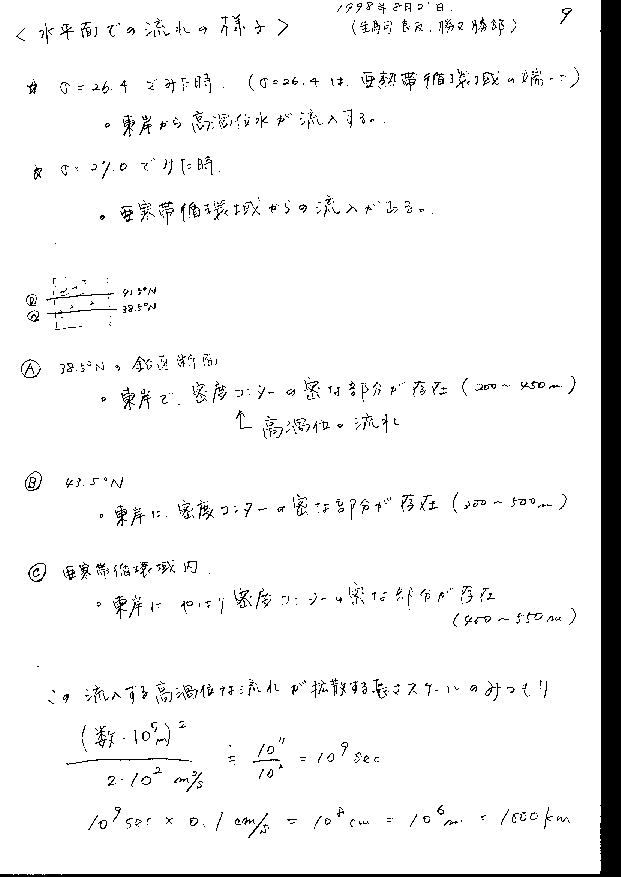 1998年8月21日
9
<水平面での流れの様子>
(生駒 良友, 勝又 勝郎)
☆ σ=26.4 でみた時. (σ=26.4 は、亜熱帯循環域の端…)
。東岸から高渦位水が流入する。
☆ σ=27.0 でみた時.
。亜寒帯循環域からの流入がある。
Ⓑ 43.5°N
Ⓐ 38.5°N
Ⓐ 38.5°Nの鉛直断面
。東岸で、密度コンターの密な部分が存在 (200~450m)
↑高渦位の流れ
Ⓑ 43.5°N
。東岸に、密度コンターの密な部分が存在 (200~500m)
Ⓒ 亜寒帯循環域内.
。東岸に やはり密度コンターの密な部分が存在
(400~550m)
この流入する高渦位な流れが拡散する長さスケールのみつもり
(数・10⁵m)² / 2・10² m²/s ≒ 10¹¹/10² = 10⁹ sec
10⁹sec × 0.1 cm/s = 10⁸cm = 10⁶m = 1000km